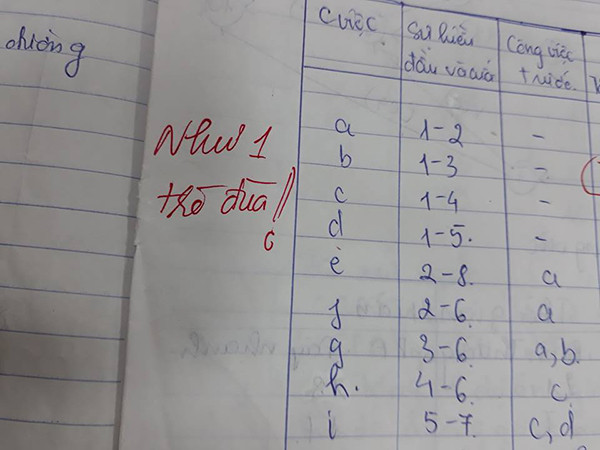 chường
Như 1
thò đùa!!
C việc | Sự kiện đầu và cuối | Công việc trước
a | 1-2 | -
b | 1-3 | -
c | 1-4 | -
d | 1-5. | -
e | 2-8. | a
f | 2-6. | a
g | 3-6. | a, b.
h. | 4-6. | c.
i | 5-7. | c, d